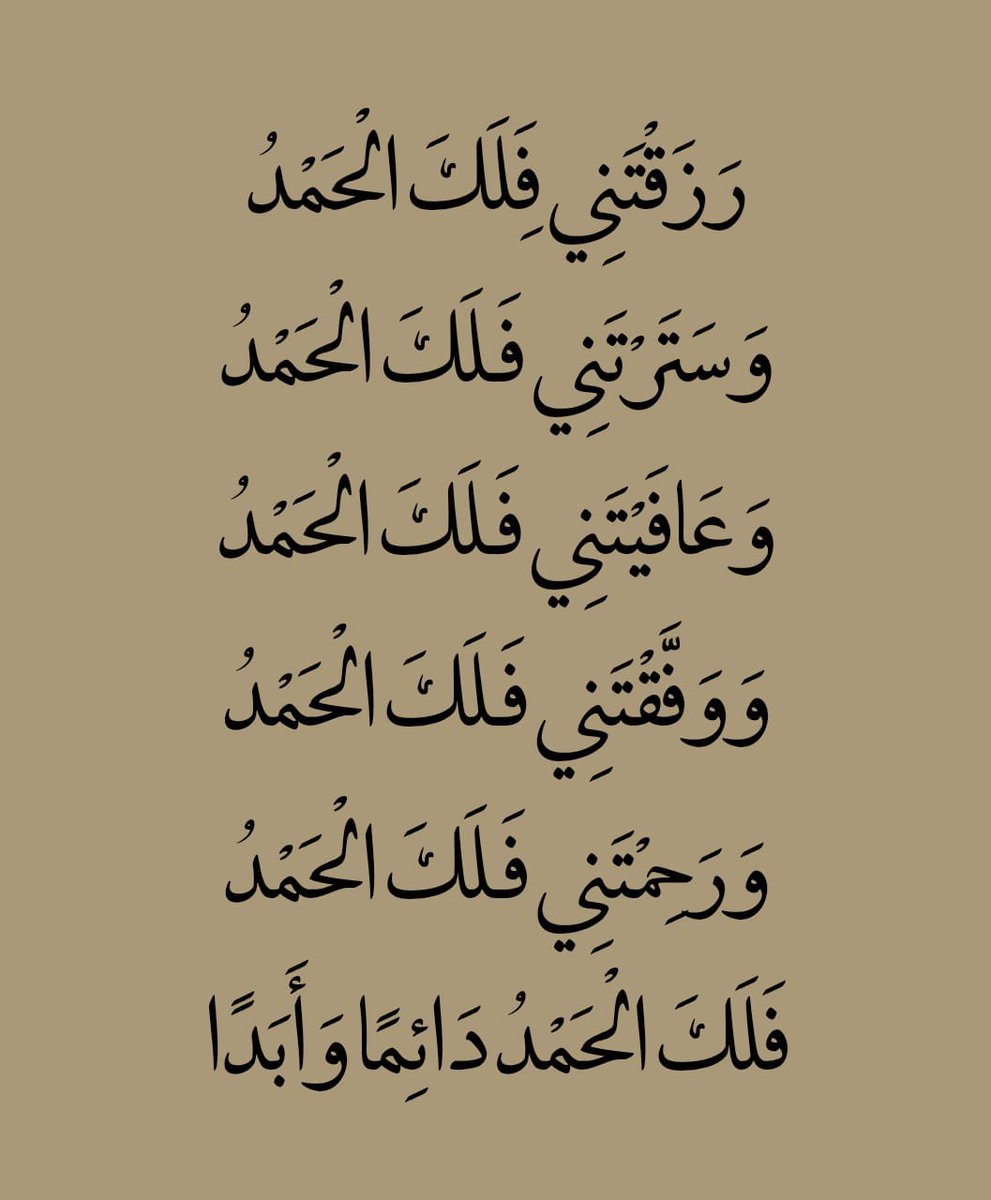 رَزَقْتَنِي فِلَكَ الْحَمْدُ
وَسَتَرْتَنِي فَلَكَ الْحَمْدُ
وَعَافَيْتَنِي فَلَكَ الْحَمْدُ
وَوَفَّقْتَنِي فَلَكَ الْحَمْدُ
وَرَحِمْتَنِي فَلَكَ الْحَمْدُ
فَلَكَ الْحَمْدُ دَائِمًا وَأَبَدًا